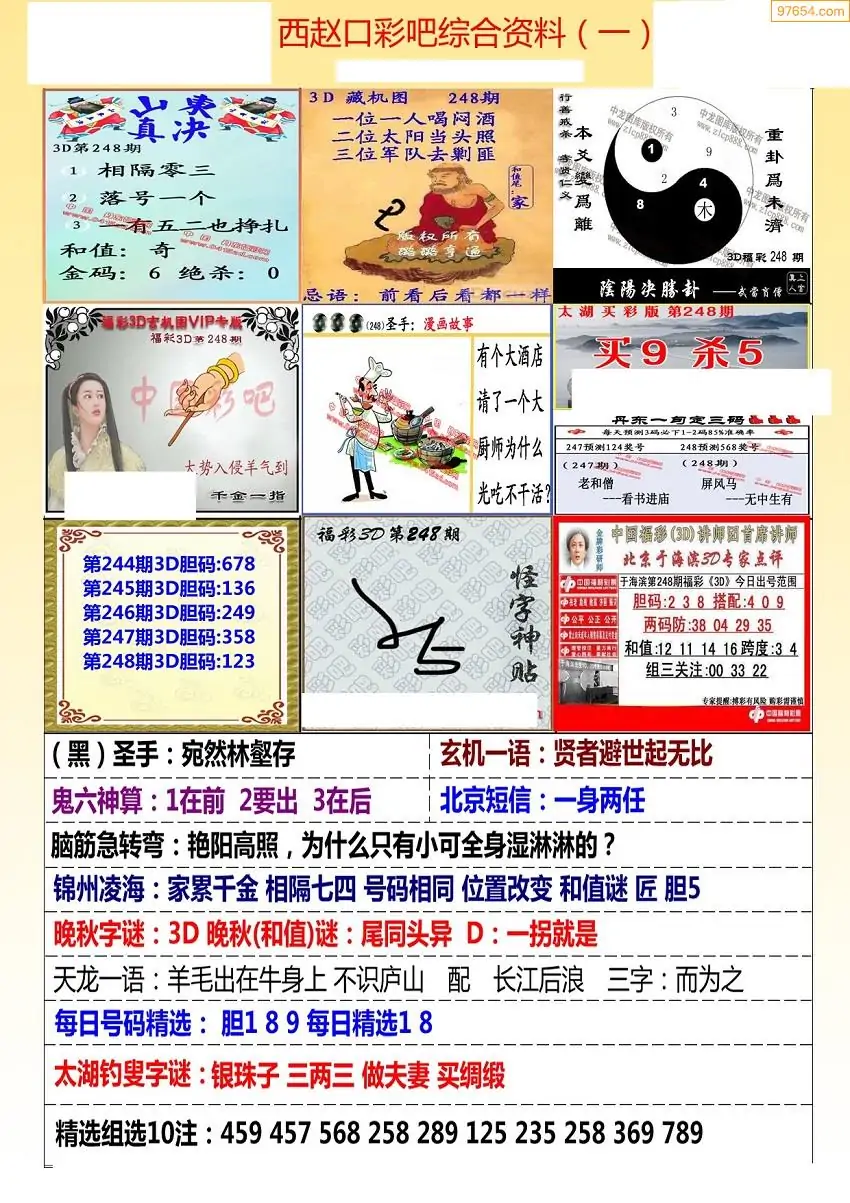 97654.com
西赵口彩吧综合资料（一）
山东
真决
3D第248期
1 相隔零三
2 落号一个
3 一有五二也挣扎
和值：奇
金码：6 绝杀：0
3D 藏机图 248期
一位一人喝闷酒
二位太阳当头照
三位军队去剿匪
和值尾：家
版权所有
忌语：前看后看都一样
行善戒杀
本爻變爲離
重卦爲未濟
3
1
9
2
4
8
木
中龙图库版权所有
www.zlcp888.com
3D福彩 248 期
陰陽决勝卦 ——武當肖僧
福彩3D玄机图VIP专版
福彩3D第248期
中国彩吧
大势入侵羊气到
千金一指
(248)圣手：漫画故事
有个大酒店
请了一个大
厨师为什么
光吃不干活？
太湖买彩版 第248期
买9 杀5
丹东一句定三码
每天预测3码必下1-2码85%准确率
247预测124奖号 248预测568奖号
(247期) (248期)
老和僧 屏风马
---一看书进庙 ---一无中生有
第244期3D胆码:678
第245期3D胆码:136
第246期3D胆码:249
第247期3D胆码:358
第248期3D胆码:123
福彩3D第248期
怪字神贴
金牌彩研师
中国福彩(3D)讲师团首席讲师
北京于海滨3D专家点评
中国福利彩票
公平 公正 公开
于海滨第248期福彩《3D》今日出号范围
胆码:2 3 8 搭配:4 0 9
两码防:38 04 29 35
和值:12 11 14 16 跨度:3 4
组三关注:00 33 22
专家提醒:搏彩有风险 购彩需谨慎
中国福利彩票
(黑)圣手：宛然林壑存
玄机一语：贤者避世起无比
鬼六神算：1在前 2要出 3在后
北京短信：一身两任
脑筋急转弯：艳阳高照，为什么只有小可全身湿淋淋的？
锦州凌海：家累千金 相隔七四 号码相同 位置改变 和值谜 匠 胆5
晚秋字谜：3D 晚秋(和值)谜：尾同头异 D：一拐就是
天龙一语：羊毛出在牛身上 不识庐山 配 长江后浪 三字：而为之
每日号码精选： 胆1 8 9 每日精选1 8
太湖钓叟字谜：银珠子 三两三 做夫妻 买绸缎
精选组选10注：459 457 568 258 289 125 235 258 369 789